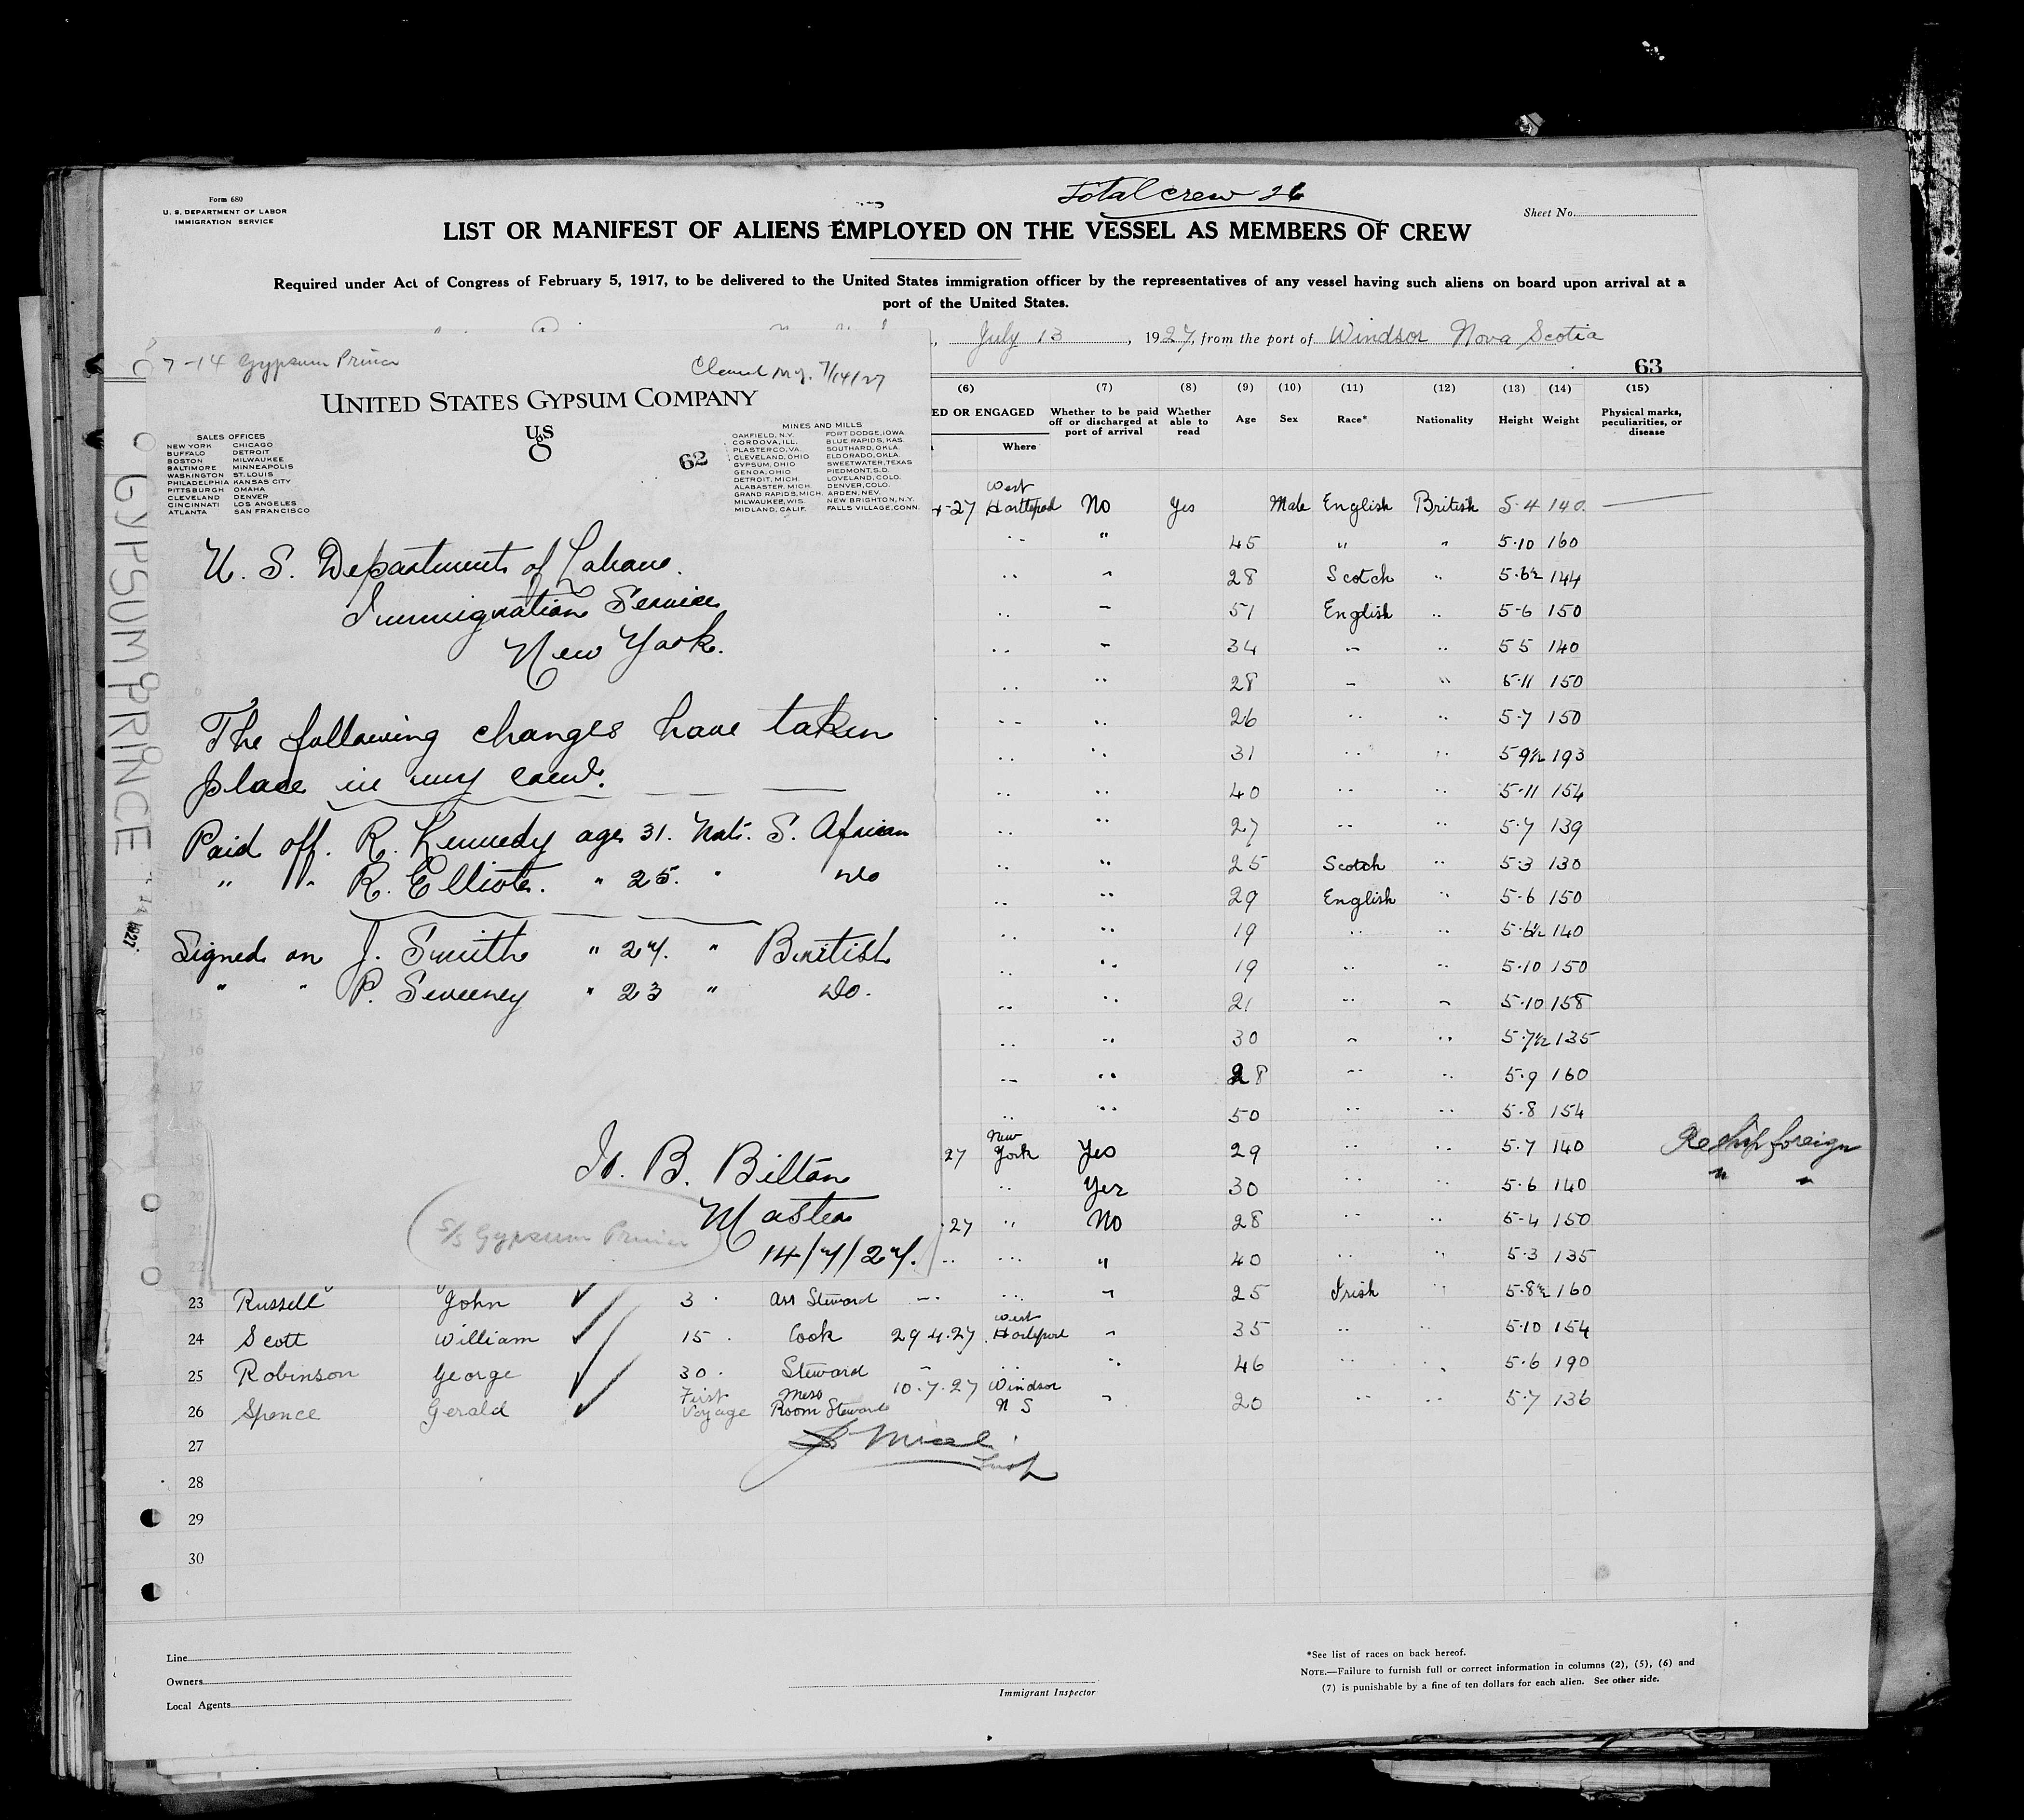 Total crew 26
Form 680
U. S. DEPARTMENT OF LABOR
IMMIGRATION SERVICE
Sheet No.
LIST OR MANIFEST OF ALIENS EMPLOYED ON THE VESSEL AS MEMBERS OF CREW
Required under Act of Congress of February 5, 1917, to be delivered to the United States immigration officer by the representatives of any vessel having such aliens on board upon arrival at a
port of the United States.
, July 13, 1927, from the port of Windsor Nova Scotia
63
7-14 Gypsum Prince
7/14/27
UNITED STATES GYPSUM COMPANY
USG
62
SALES OFFICES
NEW YORK CHICAGO
BUFFALO DETROIT
BOSTON MILWAUKEE
BALTIMORE MINNEAPOLIS
WASHINGTON ST. LOUIS
PHILADELPHIA KANSAS CITY
PITTSBURGH OMAHA
CLEVELAND DENVER
CINCINNATI LOS ANGELES
ATLANTA SAN FRANCISCO
MINES AND MILLS
OAKFIELD, N.Y. FORT DODGE, IOWA
CORDOVA, ILL. BLUE RAPIDS, KAS.
PLASTERCO, VA. SOUTHARD, OKLA.
CLEVELAND, OHIO ELDORADO, OKLA.
GYPSUM, OHIO SWEETWATER, TEXAS
GENOA, OHIO PIEDMONT, S.D.
DETROIT, MICH. LOVELAND, COLO.
ALABASTER, MICH. DENVER, COLO.
GRAND RAPIDS, MICH. ARDEN, NEV.
MILWAUKEE, WIS. NEW BRIGHTON, N.Y.
MIDLAND, CALIF. FALLS VILLAGE, CONN.
GYPSUM PRINCE
1927
U. S. Department of Labour.
Immigration Service
New York.
The following changes have taken
place in my crew.
Paid off. R. Kennedy age 31. Nat. S. African
" " R. Elliott. " 25. " do
Signed on J. Smith " 27. " British
" " P. Sweeney " 23 " do.
B. Bilton
Master
14/7/27.
S/S Gypsum Prince
(6) (7) (8) (9) (10) (11) (12) (13) (14) (15)
ED OR ENGAGED Where
Whether to be paid off or discharged at port of arrival
Whether able to read
Age Sex Race* Nationality Height Weight
Physical marks, peculiarities, or disease
-27 West Hartlepool No Yes Male English British 5-4 140
" 45 " " 5-10 160
" 28 Scotch " 5-6½ 144
" 51 English " 5-6 150
" 34 " " 5 5 140
" 28 " " 5-11 150
" 26 " " 5-7 150
" 31 " " 5-9½ 193
" 40 " " 5-11 154
" 27 " " 5-7 139
" 25 Scotch " 5-3 130
" 29 English " 5-6 150
" 19 " " 5-6½ 140
" 19 " " 5-10 150
" 21 " " 5-10 158
" 30 " " 5-7½ 135
" 28 " " 5-9 160
" 50 " " 5-8 154
27 New York Yes 29 " " 5-7 140 Reship foreign
" Yes 30 " " 5-6 140 " "
27 " No 28 " " 5-4 150
" " " 40 " " 5-3 135
23 Russell John 3 Ass Steward " " " 25 Irish " 5-8½ 160
24 Scott William 15 Cook 29-4-27 West Hartlepool " 35 " " 5-10 154
25 Robinson George 30 Steward " " " 46 " " 5-6 190
26 Spence Gerald First Voyage Mess Room Steward 10-7-27 Windsor N S " 20 " " 5-7 136
27
28
29
30
Line
Owners
Local Agents
Immigrant Inspector
*See list of races on back hereof.
NOTE.—Failure to furnish full or correct information in columns (2), (5), (6) and
(7) is punishable by a fine of ten dollars for each alien. See other side.